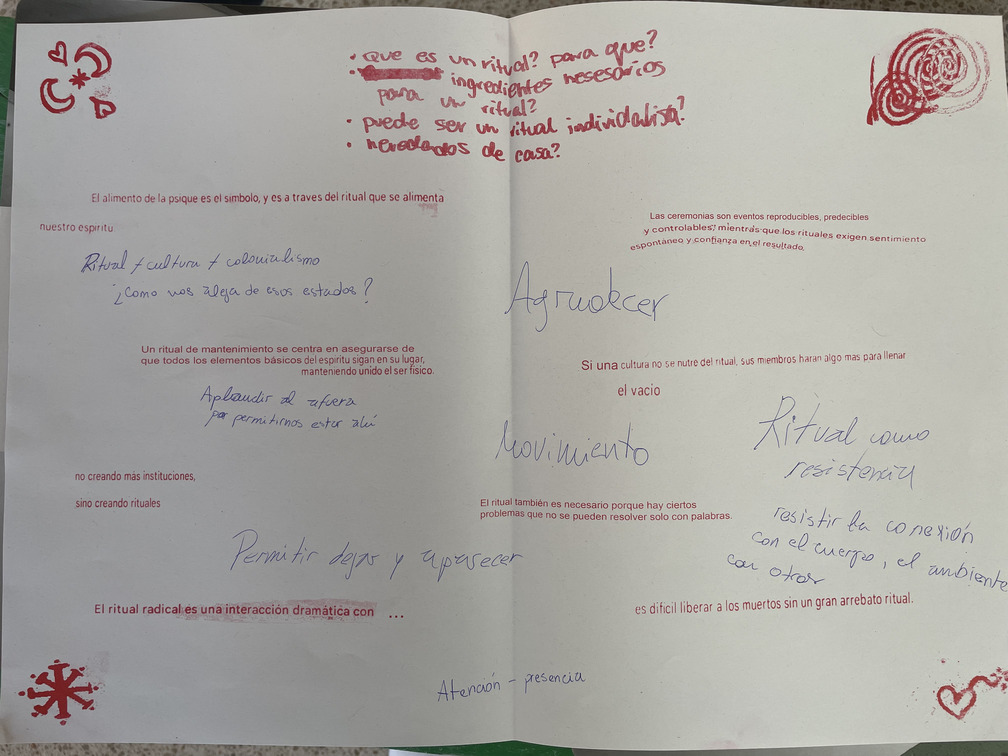 • Que es un ritual? para que?
• ingredientes nesesarios
para un ritual?
• puede ser un ritual individalista?
• heredados de casa?
El alimento de la psique es el símbolo, y es a traves del ritual que se alimenta
nuestro espiritu
Ritual + cultura + colonialismo
¿Como nos aleja de esos estados?
Un ritual de mantenimiento se centra en asegurarse de
que todos los elementos básicos del espiritu sigan en su lugar,
manteniendo unido el ser físico.
Aplaudir al afuera
por permitirnos estar ahí
no creando más instituciones,
sino creando rituales
Permitir dejar y aparecer
El ritual radical es una interacción dramática con ...
Las ceremonias son eventos reproducibles, predecibles
y controlables, mientras que los rituales exigen sentimiento
espontáneo y confianza en el resultado.
Agradecer
Si una cultura no se nutre del ritual, sus miembros haran algo mas para llenar
el vacio
Movimiento
Ritual como
resistencia
El ritual también es necesario porque hay ciertos
problemas que no se pueden resolver solo con palabras.
resistir la conexión
con el cuerpo, el ambiente
con otros
es dificil liberar a los muertos sin un gran arrebato ritual.
Atención - presencia